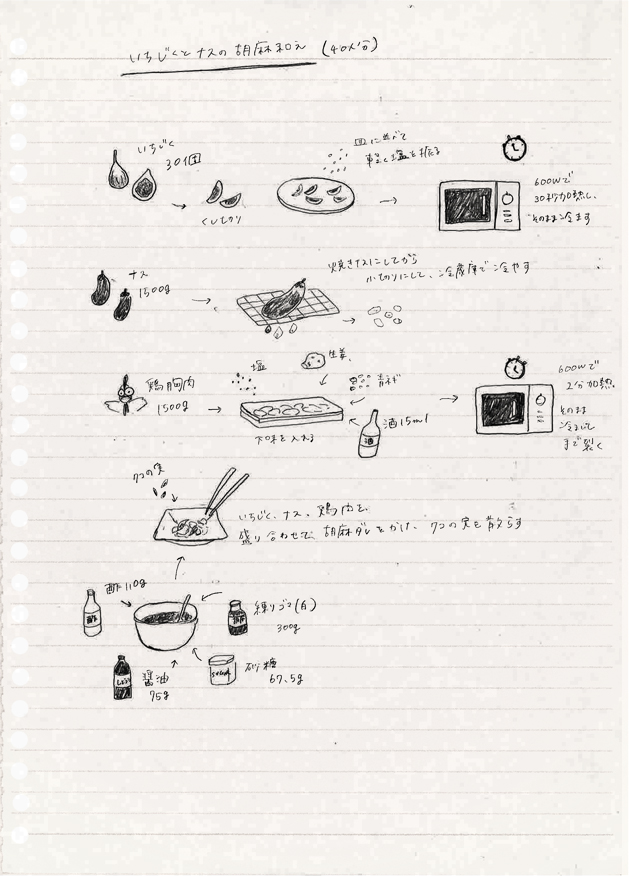 いちじくとナスの胡麻和え (40人分)
いちじく
30個
くし切り
皿に並べて
軽く塩を振る
600Wで
30秒加熱し、
そのまま冷ます
ナス
1500g
焼きナスにしてから
小切りにして、冷蔵庫で冷やす
鶏胸肉
1500g
塩
生姜、
青ネギ
酒
酒15ml
下味を入れる
600Wで
2分加熱、
そのまま
冷まして
手で裂く
クコの実
いちじく、ナス、鶏肉を、
盛り合わせて、胡麻ダレをかけ、クコの実を散らす
酢110g
酢
練りゴマ(白)
300g
醤油
75g
砂糖
67.5g